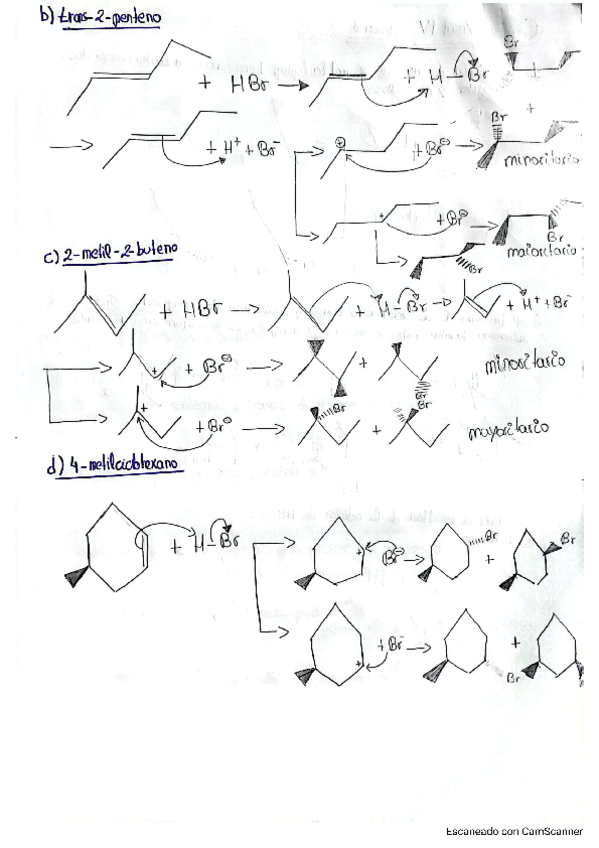 b) trans-2-penteno
Br
+ HBr → + H-Br
+
Br
+ H⁺ + Br⁻ + Br⊖ →
minoritario
+ Br⊖ →
Br
maioritario
Br
c) 2-metil-2-buteno
+ HBr → + H-Br → + H⁺ + Br⁻
+ + Br⊖ → + minoritario
Br
+ Br Br
+ Br⊖ → + mayoritario
d) 4-metilciclohexano
+ H-Br → + Br⊖ → Br + Br
+ + Br⁻ → +
Br Br
Escaneado con CamScanner